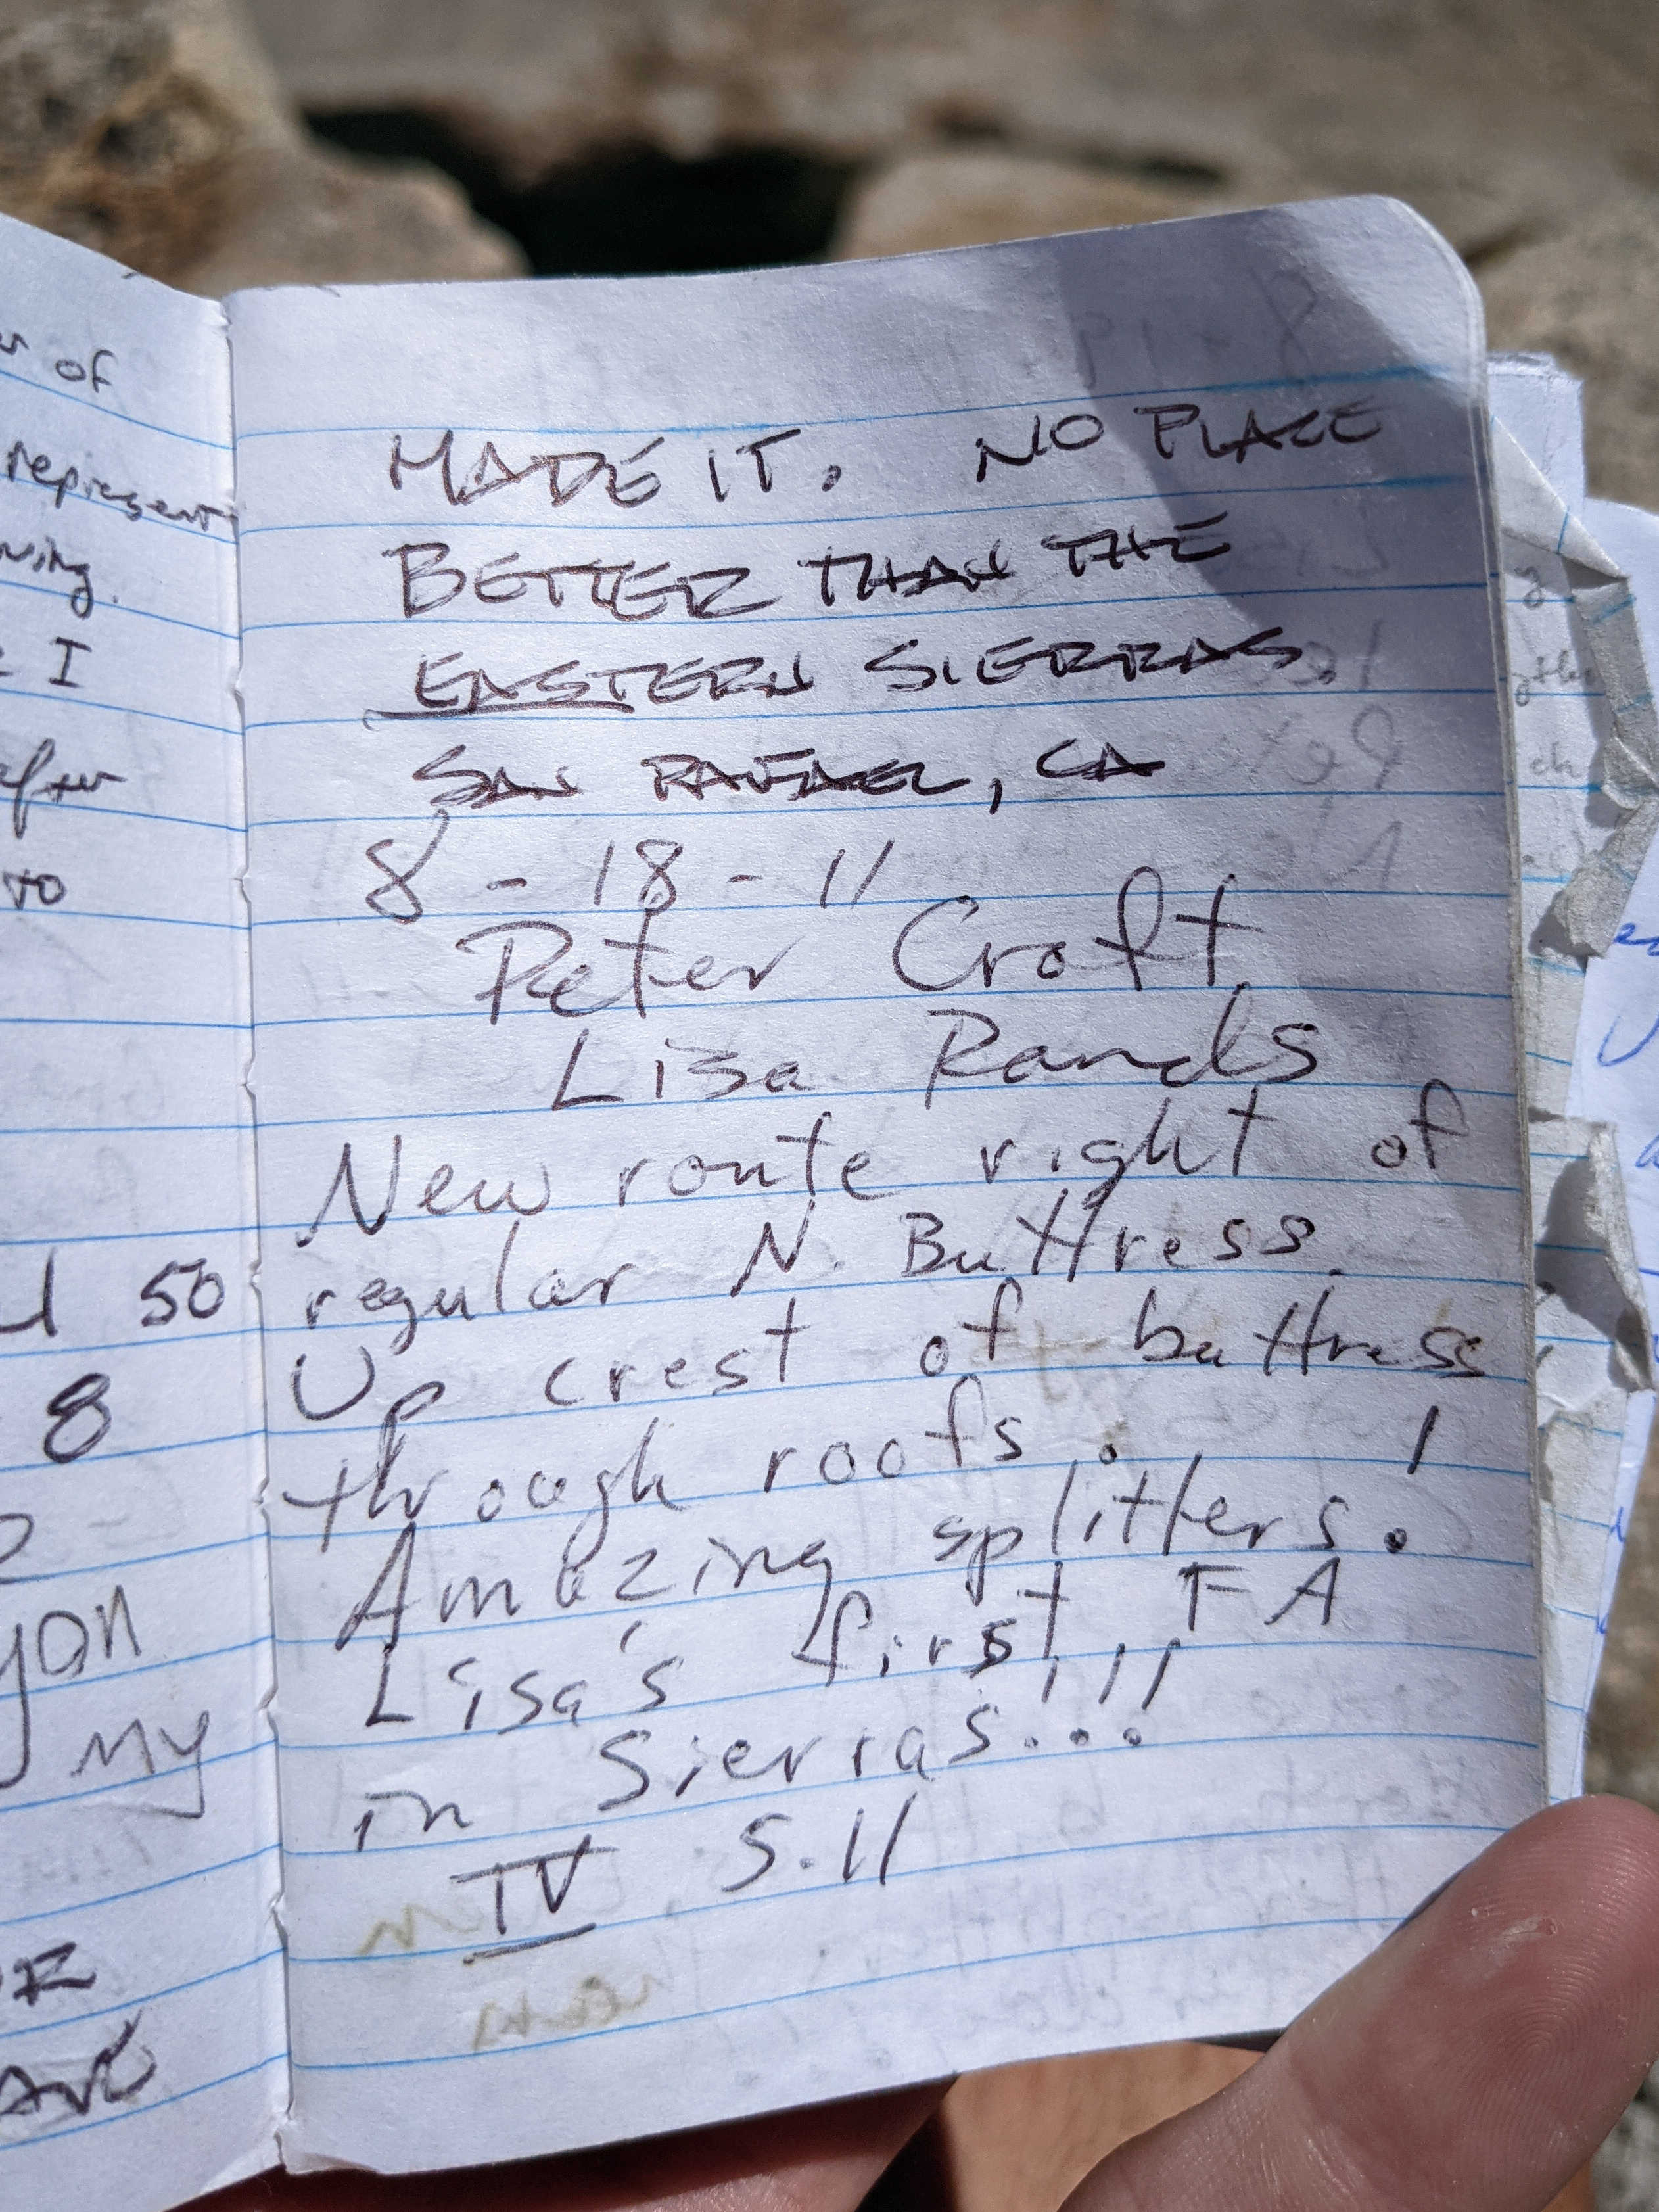 of
represent
I
after
to
50
8
my
MADE IT. NO PLACE
BETTER THAN THE
EASTERN SIERRAS.
SAN RAFAEL, CA
8-18-11
Peter Croft
Lisa Rands
New route right of
regular N. Buttress.
Up crest of buttress
through roofs.
Amazing splitters!
Lisa's first FA
in Sierras!!!
IV 5.11